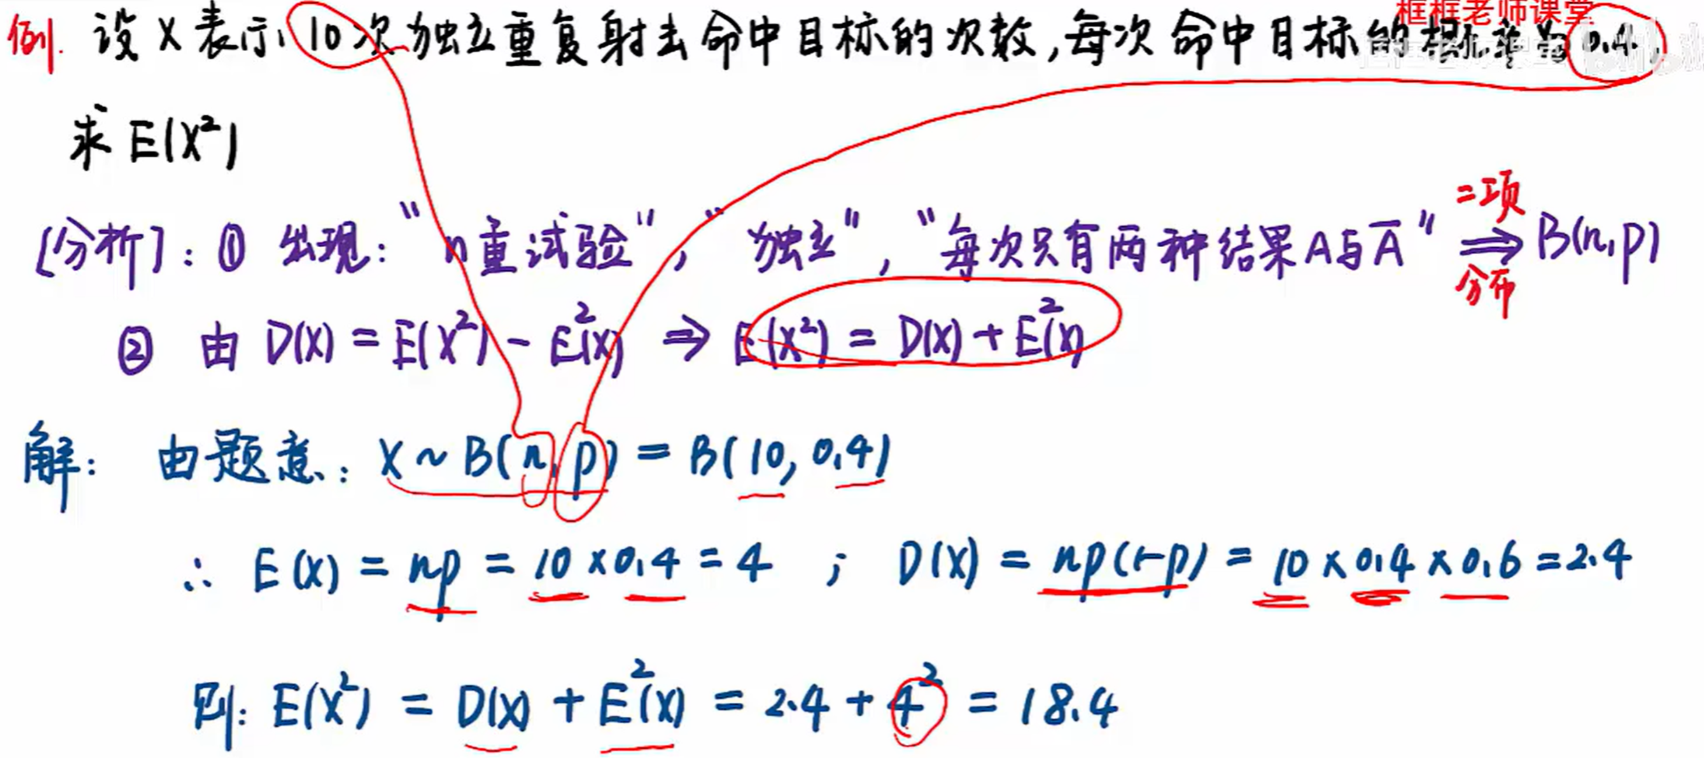 框框老师课堂
例. 设 X 表示 10次 独立重复射击命中目标的次数,每次命中目标的概率为 0.4,
求 E(X²)
[分析]: ① 出现: "n重试验", "独立", "每次只有两种结果A与Ā" ⇒ B(n,p)
二项
分布
② 由 D(X) = E(X²) - E²(X) ⇒ E(X²) = D(X) + E²(X)
解: 由题意: X ~ B(n,p) = B(10, 0.4)
∴ E(X) = np = 10 × 0.4 = 4 ; D(X) = np(1-p) = 10 × 0.4 × 0.6 = 2.4
则: E(X²) = D(X) + E²(X) = 2.4 + 4² = 18.4